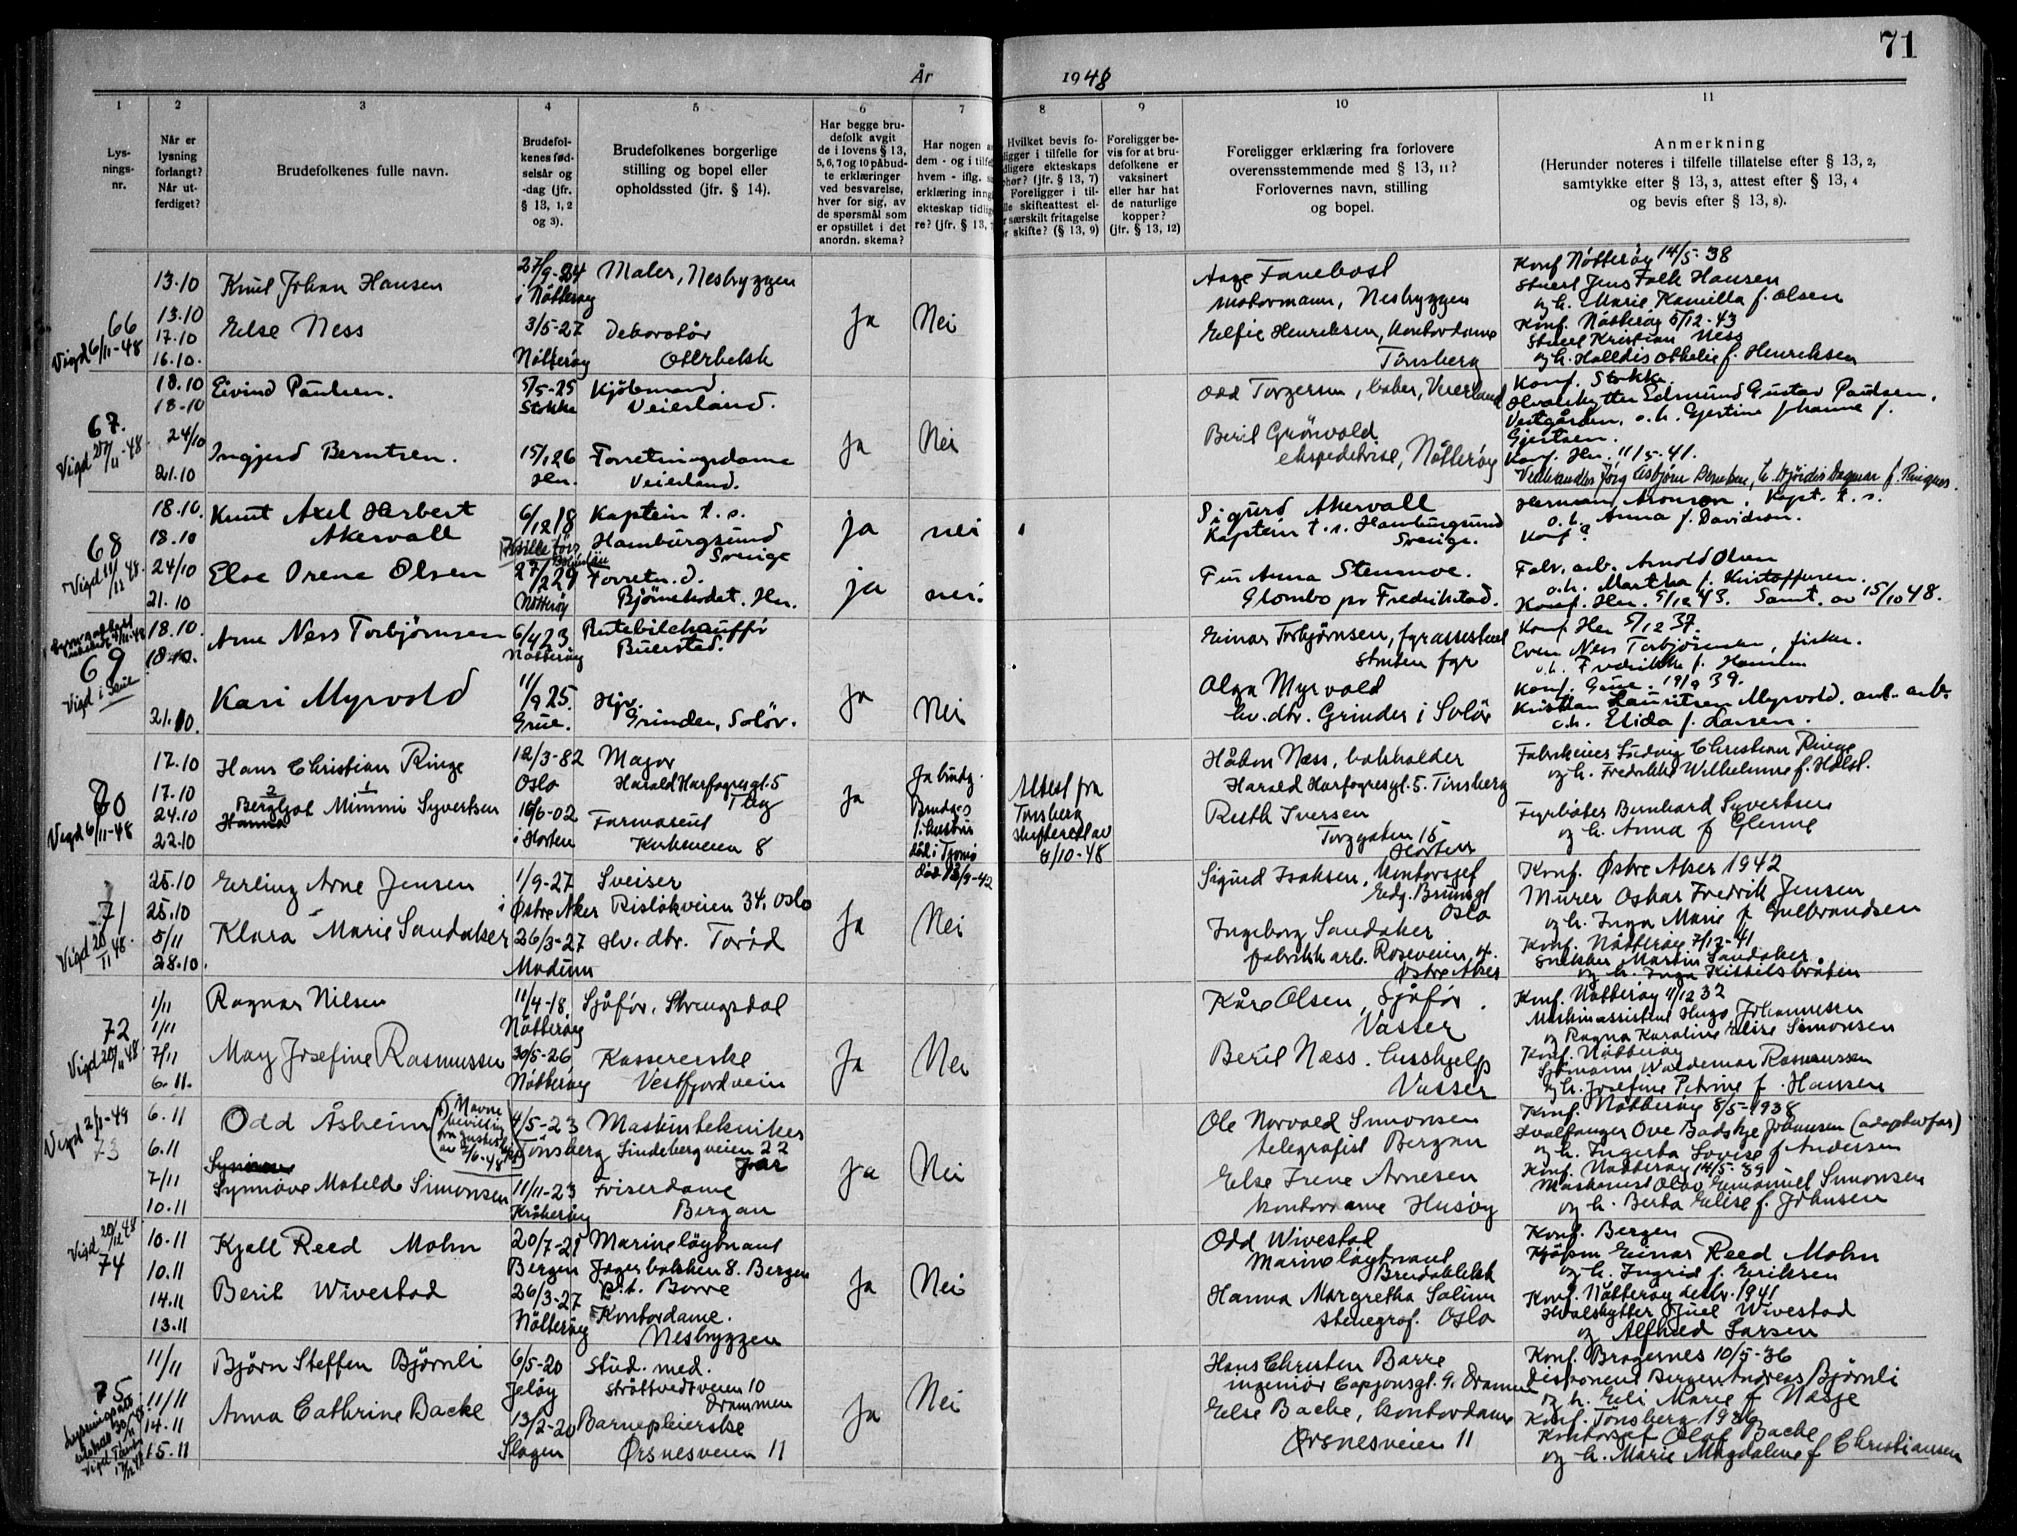 71
År 1948
1
2
3
4
5
6
7
8
9
10
11
Lysningsnr.
Når er lysning forlangt? Når utferdiget?
Brudefolkenes fulle navn.
Brudefolkenes fødselsår og -dag (jfr. § 13, 1, 2 og 3).
Brudefolkenes borgerlige stilling og bopel eller opholdssted (jfr. § 14).
Har begge brudefolk avgit de i lovens § 13, 5, 6, 7 og 10 påbudte erklæringer ved besvarelse, hver for sig, av de spørsmål som er opstillet i det anordn. skema?
Foreligger bevis for at brudefolkene er vaksinert eller har hat de naturlige kopper? (jfr. § 13, 12)
Foreligger erklæring fra forlovere overensstemmende med § 13, 11? Forlovernes navn, stilling og bopel.
Anmerkning
(Herunder noteres i tilfelle tillatelse efter § 13, 2, samtykke efter § 13, 3, attest efter § 13, 4 og bevis efter § 13, 8).
66
Vigd 6/11-48
13.10
13.10
17.10
16.10.
Knut Johan Hansen
27/9-24
i Nøtterøy
Maler, Nesbryggen
Else Ness
3/5-27
Nøtterøy
Dekoratør
Ja
Nei
Aage Fanebost
motormann, Nesbryggen
Elfie Henriksen, kontordame
Tønsberg
Konf Nøtterøy 14/5-38
Stuert Jens Falk Hansen
og h. Marie Kamilla f. Olsen
Konf. Nøtterøy 5/12-43
Stuert Kristian Ness
og h. Halldis Othelie f. Henriksen
67.
Vigd 27/11-48
18.10
18-10
24/10
21.10
Eivind Paulsen.
5/5-25
Stokke
Kjøbmand.
Veierland.
Ingjerd Berntsen.
15/1 26
Her.
Forretningsdame
Veierland.
Ja
Nei
Odd Torgersen, baker, Veierland
Beril Grönvold
ekspeditrise, Nøtterøy
Konf. Stokke
Hvalskytter Edmund Gustav Paulsen,
Vestgården, o.h. Gjertine Johanne f.
Gjertsen.
Konf. Her. 11/5-41.
68
Vigd 11/12 48.
18.10.
18.10
24/10
21.10
Knut Axel Herbert
Akervall
6/12 18
Kaptein t. s.
Hamburgsund
Sverige
Else Irene Olsen
27/2 29
Nøtterøy
Forretn.d.
Bjørnebodet. Her.
ja
nei
ja
nei.
Sigurd Akervall
Kaptein t. s. Hamburgsund
Sverige.
Fru Anna Stensmoe.
Glombo pr Fredrikstad.
Herman Aronson, Kapt. t. s.
o.h. Anna f. Davidson.
Konf?
Fabr. arb. Arnold Olsen
o.h. Martha f. Kristoffersen.
Konf. Her. 5/12 43. Samt. av 15/10 48.
69
Vigd i Grue
18.10.
18.10.
21.10.
Arne Ness Torbjørnsen
6/4 23
Nøtterøy
Rutebilchauffør
Buerstad.
Kari Myrvold
11/9 25.
Grue.
Hjv.
Grinder, Solør.
Ja
Nei
Einar Torbjørnsen, fyrassistent
Struten fyr
Olga Myrvold
hv. dtr. Grinder i Solør
Konf. Her 5/12 37.
Even Ness Torbjørnsen, fisker.
o.h. Fredrikke f. Hansen
Konf. Grue. 19/9 39.
Kristian Lauritsen Myrvold. anl. arb.
o.h. Elida f. Larsen.
70
Vigd 6/11-48
17.10
17.10
24.10
22.10
Hans Christian Ringe
12/3-82
Oslo
Major
Harald Harfagresgt. 5
Tbg
2 1
Bergljot Mimmi Syvertsen
Hanna
16/6-02
i Horten
Farmaseut
Kirkeveien 8
Ja
Attest fra
Tønsberg
skifterett av
Håkon Næss, bokholder
Harald Harfagresgt. 5. Tønsberg
Ruth Iversen
Torggaten 15
Horten
Fabrikeier Ludvig Christian Ringe
og h. Fredrikke Wilhelmine f. Holst.
Fyrbøter Bernhard Syvertsen
og h. Anna f Glenne
71
Vigd 20/11 48.
25.10
25.10
5/11
28.10.
Erling Arne Jensen
1/9-27
i Østre Aker
Sveiser
Risløkveien 34. Oslo
Klara Marie Sandaker
26/3-27
Modum
Hv. dtr. Torød
Ja
Nei
Sigurd Isaksen, Kontorsjef
Edv. Brunsgt
Oslo
Ingeborg Sandaker
fabrikk arb. Roseveien 4.
Østre Aker
Konf. Østre Aker 1942
Murer Oskar Fredrik Jensen
og h. Inga Marie f Gulbrandsen
Konf. Nøtterøy 7/12-41
Snekker Martin Sandaker
og h. Inga Kittilsbråten
72
Vigd 20/11 48
1/11
1/11
7/11
6.11.
Ragnar Nilsen
11/4-18.
Nøtterøy
Sjåfør, Strengsdal
May Josefine Rasmussen
30/5-26
Nøtterøy
Kassererske
Vestfjordvein
Ja
Nei
Kåre Olsen, Sjåfør.
Vasser
Beril Næss. husshjelp
Vasser
Konf. Nøtterøy 11/12 32
Maskinassistent Hugo Johannesen
og Ragna Karoline Elise Simonsen
Konf. Nøtterøy
Sjømann Waldemar Rasmussen
og h. Josefine Petrine f. Hansen
Vigd 2/1-49
73
6.11
6.11
7/11
10.11
Odd Åsheim
4/5-23
Tønsberg
Maskintekniker
Lindebergveien 22
Jar
Synnøve Matilde Simonsen
11/11-23
Kråkerøy
Friserdame
Bergan
Ja
Nei
Ole Norvald Simonsen
telegrafist Bergan
Else Irene Arnesen
kontordame Husøy
Konf. Nøtterøy 8/5-1938
Hvalfanger Ove Badskje Johansen (adoptivfar)
og h. Ingerta Lovise f Andersen
Konf. Nøtterøy 14/5-39
Maskinist Olav Emanuel Simonsen
og h. Berta Elise f. Johnsen
Vigd 20/12 48
74
10.11
10.11
14.11
13.11
Kjell Reed Mohn
20/7-21
Bergen
Marineløytnant
Jægerbakken 8. Bergen
p.t. Borre
Beril Wivestad
26/3-27
Nøtterøy
Kontordame.
Nesbryggen
Ja
Nei
Odd Wivestad
Marineløytnant
Bredablikk
Hanna Margretha Salum
stenograf. Oslo
Konf. Bergen
Kjøpm Einar Reed Mohn
og h. Ingrid f. Eriksen
Konf. Nøtterøy desbr. 1941
Hvalskytter Juel Wivestad
og Alfhild Larsen
75
11/11
11/11
14.11
15.11
Bjørn Steffen Bjørnli
6/5-20
Jeløy
stud. med.
Strøttvedtveien 10
Drammen
Anna Cathrine Backe
13/2-20
Slagen
Barnepleierske
Ørsnesveien 11
Ja
Nei
Hans Christen Barre
ingeniør Capponsgt. 9. Drammen
Else Backe, kontordame
Ørsnesveien 11
Konf. Bragernes 10/5-36
Disponent Bergen Andreas Bjørnli
og h. Eli Marie f Næsje
Konf. Tønsberg 1936
Kontorsjef Olaf Backe
og h. Marie Magdalene f Christiansen